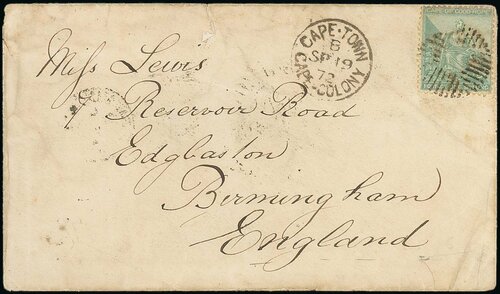 CAPE·TOWN
B
SP 19
72
CAPE·COLONY
Miss Lewis
7 Reservoir Road
Edgbaston
Birmingham
England